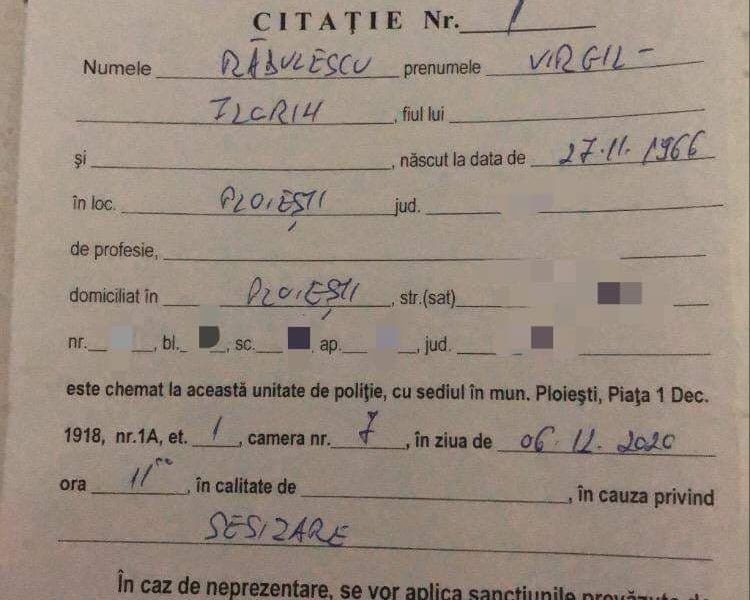 CITAŢIE Nr. 1
Numele RĂDULESCU prenumele VIRGIL-
FLORIN, fiul lui
şi , născut la data de 27.11.1966
în loc. PLOIEȘTI jud.
de profesie,
domiciliat în PLOIEȘTI, str.(sat)
nr. , bl. , sc. ap. , jud.
este chemat la această unitate de poliţie, cu sediul în mun. Ploieşti, Piaţa 1 Dec.
1918, nr.1A, et. 1, camera nr. 7, în ziua de 06.12.2020
ora 11⁰⁰, în calitate de , în cauza privind
SESIZARE
În caz de neprezentare, se vor aplica sancţiunile prevăzute de